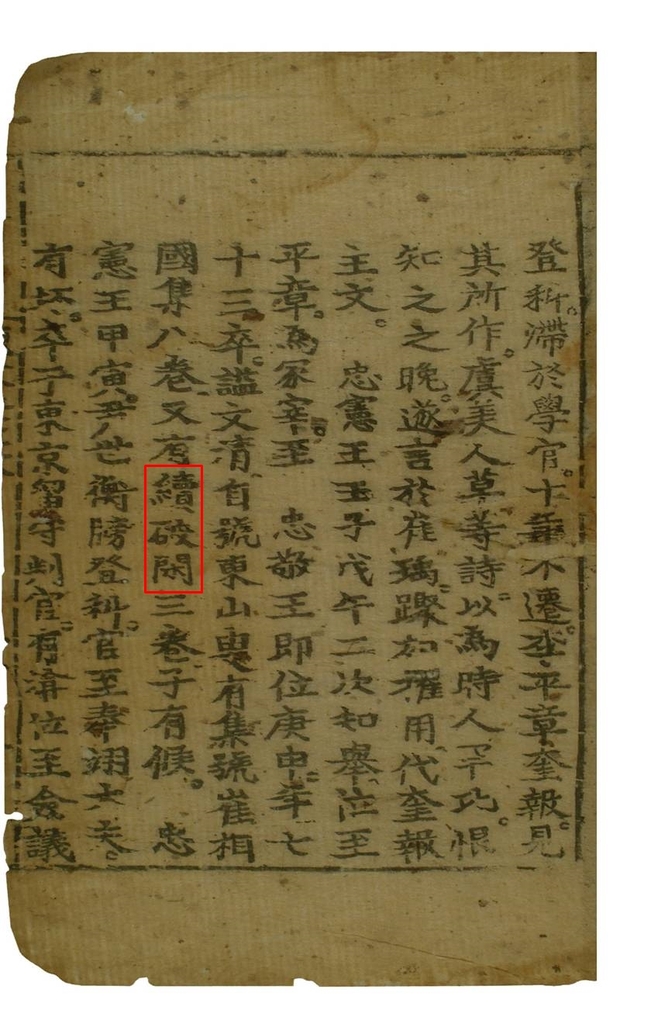 登科滯於學官十年不遷李平章奎報見
其所作虞美人草等詩以為時人
知之之晚遂言於崔瑀躐加擢用代奎報
主文 忠憲王壬子戊午二次知擧位至
平章為冢宰至 忠敬王即位庚申年七
十三卒謚文清自號東山叟有集號崔相
國集八卷又有續破閑三卷子有候 忠
憲王甲寅世衡牓登科官至奉翊大夫
有坏卒于東京留守判官有渰位至僉議